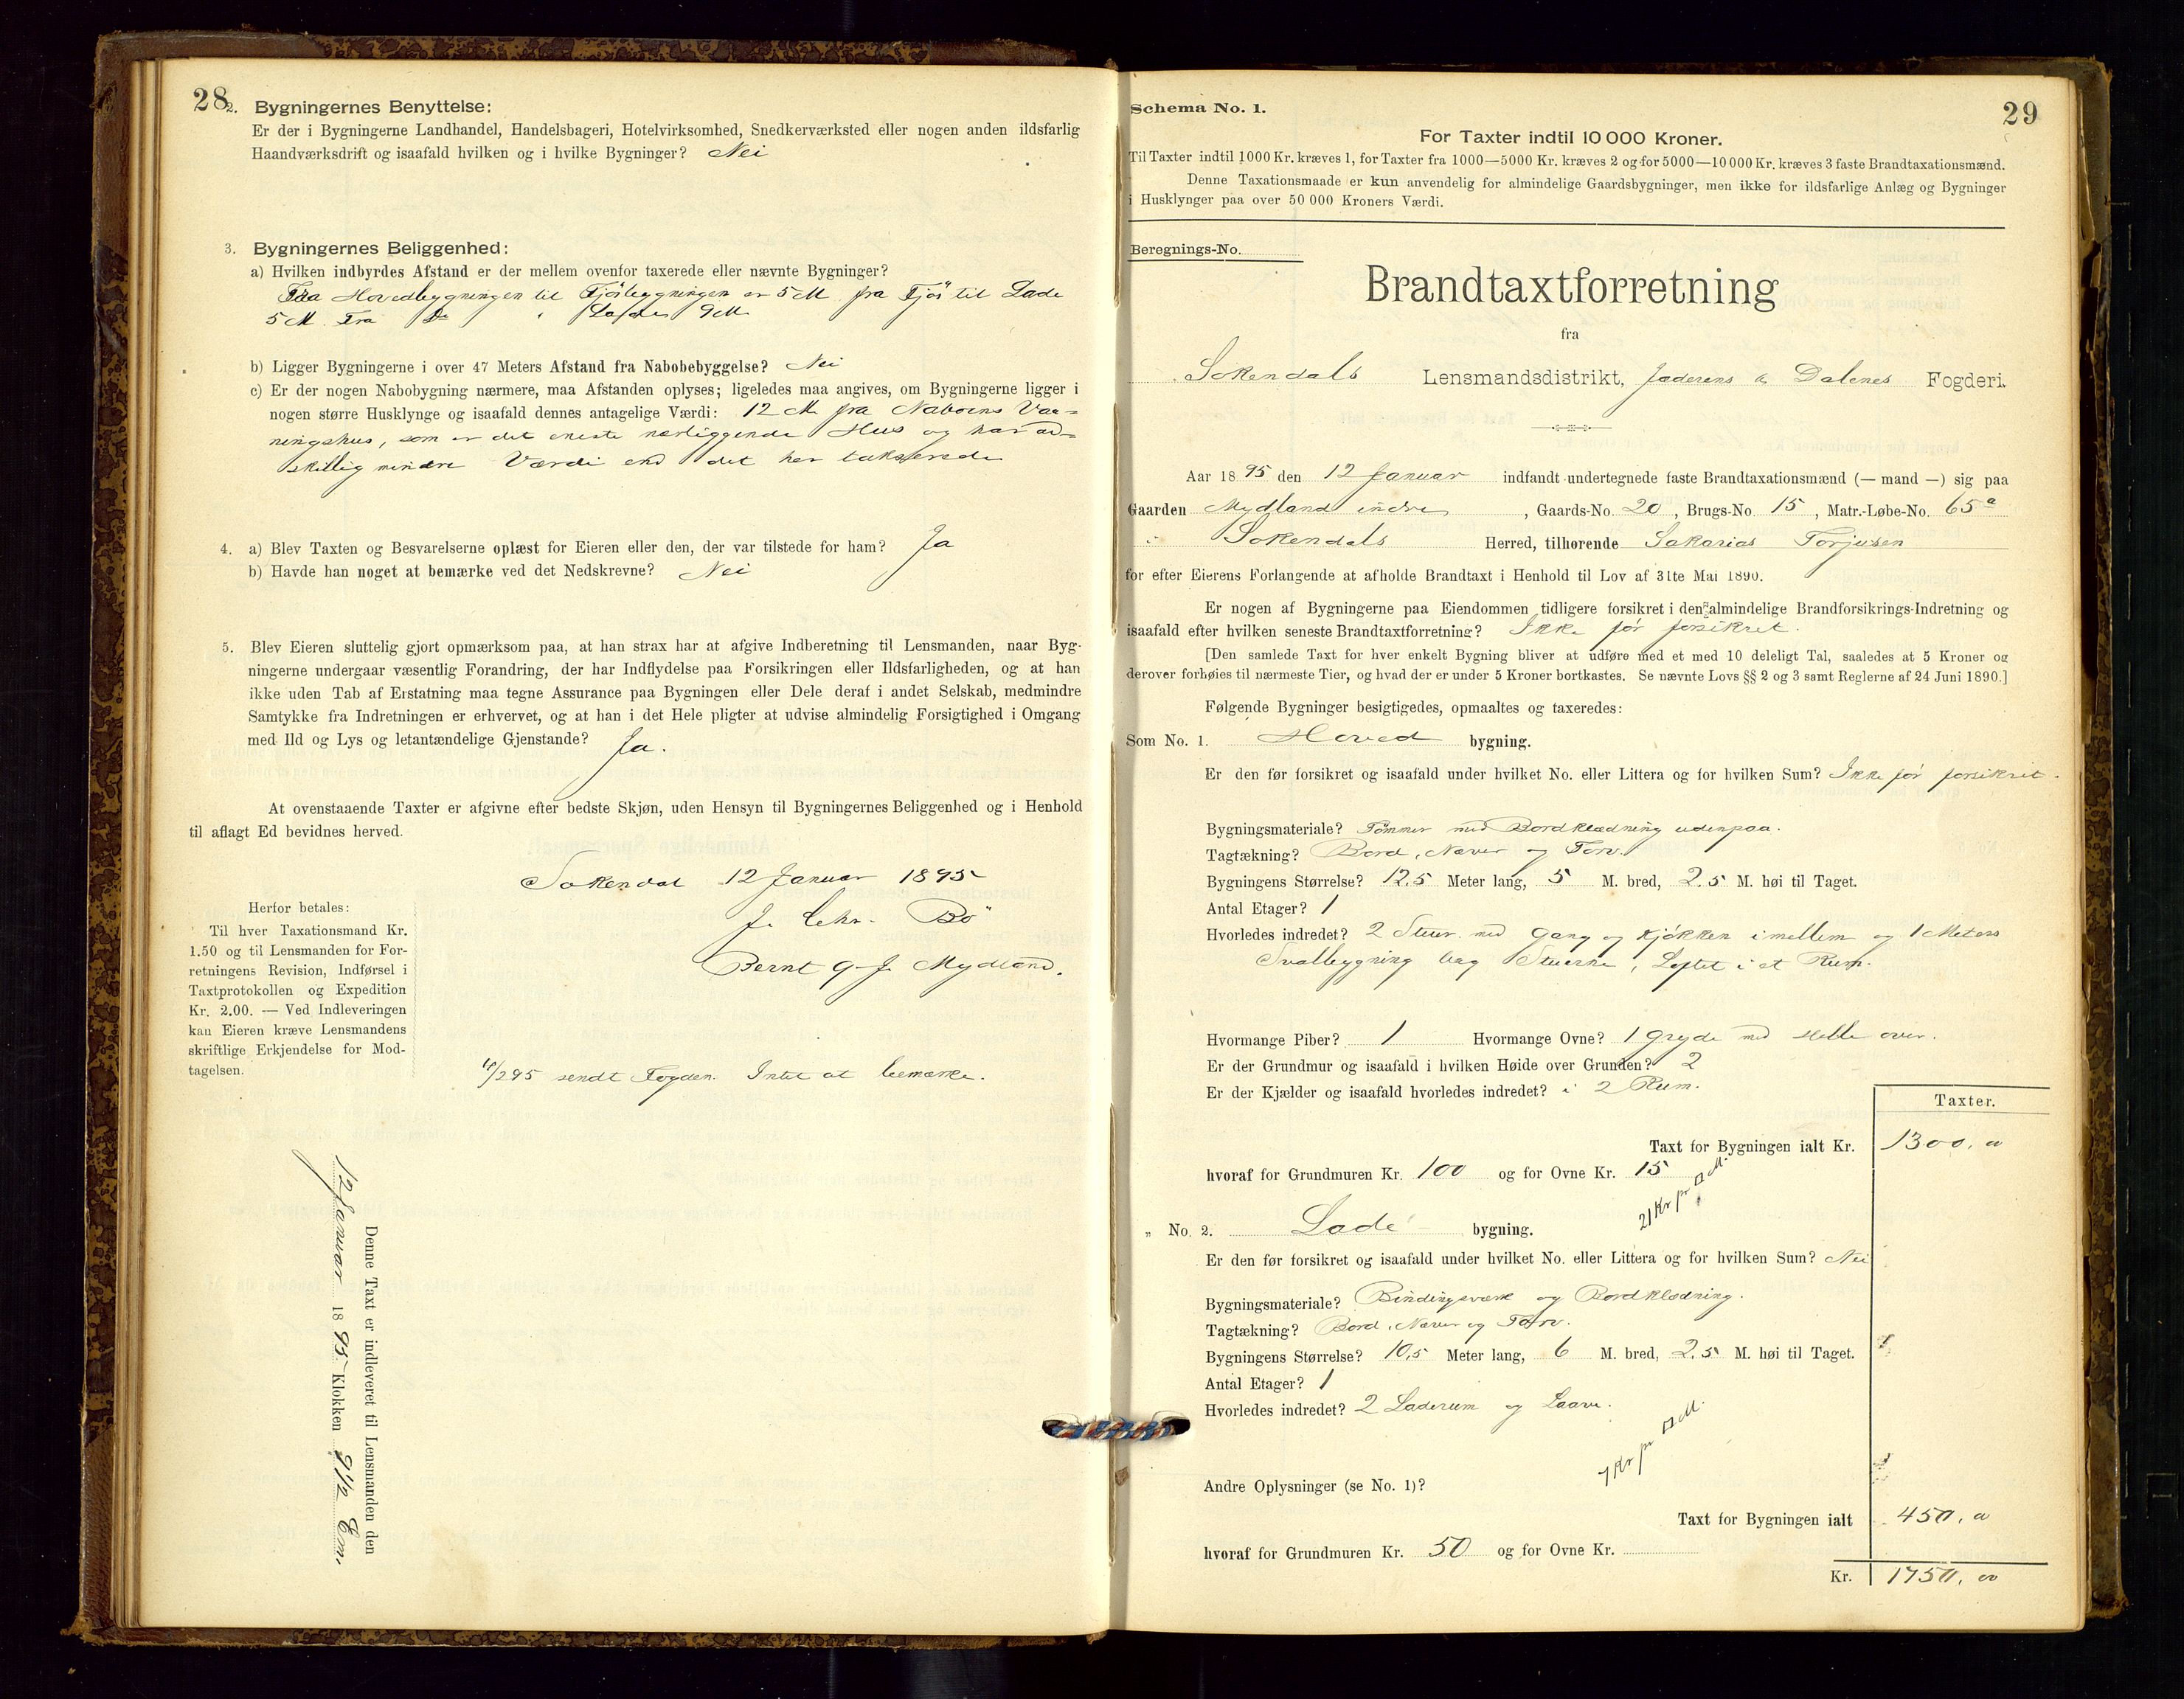 28
2. Bygningernes Benyttelse:
Er der i Bygningerne Landhandel, Handelsbageri, Hotelvirksomhed, Snedkerværksted eller nogen anden ildsfarlig
Haandværksdrift og isaafald hvilken og i hvilke Bygninger? Nei
3. Bygningernes Beliggenhed:
a) Hvilken indbyrdes Afstand er der mellem ovenfor taxerede eller nævnte Bygninger?
Fra Hovedbygningen til Fjösbygningen er 5 M. fra Fjös til Lade
5 M. Fra Do " 9 M.
b) Ligger Bygningerne i over 47 Meters Afstand fra Nabobebyggelse? Nei
c) Er der nogen Nabobygning nærmere, maa Afstanden oplyses; ligeledes maa angives, om Bygningerne ligger i
nogen større Husklynge og isaafald dennes antagelige Værdi: 12 M. fra Naboens Vaa=
ningshus, som er det eneste nærliggende Hus og har ad=
skillig mindre Værdi end det her takserede
4. a) Blev Taxten og Besvarelserne oplæst for Eieren eller den, der var tilstede for ham? Ja
b) Havde han noget at bemærke ved det Nedskrevne? Nei
5. Blev Eieren sluttelig gjort opmærksom paa, at han strax har at afgive Indberetning til Lensmanden, naar Byg-
ningerne undergaar væsentlig Forandring, der har Indflydelse paa Forsikringen eller Ildsfarligheden, og at han
ikke uden Tab af Erstatning maa tegne Assurance paa Bygningen eller Dele deraf i andet Selskab, medmindre
Samtykke fra Indretningen er erhvervet, og at han i det Hele pligter at udvise almindelig Forsigtighed i Omgang
med Ild og Lys og letantændelige Gjenstande? Ja.
At ovenstaaende Taxter er afgivne efter bedste Skjøn, uden Hensyn til Bygningernes Beliggenhed og i Henhold
til aflagt Ed bevidnes herved.
Sokendal 12 Januar 1895
J. Chr. Bö
Bernt G. J. Mydland.
Herfor betales:
Til hver Taxationsmand Kr.
1.50 og til Lensmanden for For-
retningens Revision, Indførsel i
Taxtprotokollen og Expedition
Kr. 2.00. — Ved Indleveringen
kan Eieren kræve Lensmandens
skriftlige Erkjendelse for Mod-
tagelsen.
/2 95 sendt Fogden. Intet at bemærke.
Denne Taxt er indleveret til Lensmanden den
12 Januar 1895 Klokken 9 1/2 Em.
Schema No. 1.
29
For Taxter indtil 10 000 Kroner.
Til Taxter indtil 1000 Kr. kræves 1, for Taxter fra 1000—5000 Kr. kræves 2 og for 5000—10 000 Kr. kræves 3 faste Brandtaxationsmænd.
Denne Taxationsmaade er kun anvendelig for almindelige Gaardsbygninger, men ikke for ildsfarlige Anlæg og Bygninger
i Husklynger paa over 50 000 Kroners Værdi.
Beregnings-No.
Brandtaxtforretning
fra
Sokendals Lensmandsdistrikt, Jæderens & Dalenes Fogderi.
Aar 1895 den 12 Januar indfandt undertegnede faste Brandtaxationsmænd (— mand —) sig paa
Gaarden Mydland indre, Gaards-No. 20, Brugs-No. 15, Matr.-Løbe-No. 65a
i Sokendals Herred, tilhørende Sakarias Torjusen
for efter Eierens Forlangende at afholde Brandtaxt i Henhold til Lov af 31te Mai 1890.
Er nogen af Bygningerne paa Eiendommen tidligere forsikret i den almindelige Brandforsikrings-Indretning og
isaafald efter hvilken seneste Brandtaxtforretning? Ikke för forsikret.
[Den samlede Taxt for hver enkelt Bygning bliver at udføre med et med 10 deleligt Tal, saaledes at 5 Kroner og
derover forhøies til nærmeste Tier, og hvad der er under 5 Kroner bortkastes. Se nævnte Lovs §§ 2 og 3 samt Reglerne af 24 Juni 1890.]
Følgende Bygninger besigtigedes, opmaaltes og taxeredes:
Som No. 1. Hoved bygning.
Er den før forsikret og isaafald under hvilket No. eller Littera og for hvilken Sum? Ikke för forsikret.
Bygningsmateriale? Tömmer med Bordklædning udenpaa.
Tagtækning? Bord, Næver og Torv.
Bygningens Størrelse? 12.5 Meter lang, 5 M. bred, 2.5 M. høi til Taget.
Antal Etager? 1
Hvorledes indredet? 2 Stuer med Gang og Kjökken imellem og 1 Meters
Svalbygning bag Stuerne, Loftet i et Rum.
Hvormange Piber? 1 Hvormange Ovne? 1 Gryde med Helle over.
Er der Grundmur og isaafald i hvilken Høide over Grunden? 2
Er der Kjælder og isaafald hvorledes indredet? i 2 Rum.
Taxter.
Taxt for Bygningen ialt Kr. 1300, 00
hvoraf for Grundmuren Kr. 100 og for Ovne Kr. 15
21 Kr pr □ M.
" No. 2. Lade bygning.
Er den før forsikret og isaafald under hvilket No. eller Littera og for hvilken Sum? Nei
Bygningsmateriale? Bindingsværk og Bordklædning.
Tagtækning? Bord, Næver og Torv.
Bygningens Størrelse? 10,5 Meter lang, 6 M. bred, 2.5 M. høi til Taget.
Antal Etager? 1
Hvorledes indredet? 2 Laderum og Laave.
7 Kr pr □ M.
Andre Oplysninger (se No. 1)?
Taxt for Bygningen ialt 450, 00
hvoraf for Grundmuren Kr. 50 og for Ovne Kr.
Kr. 1750, 00